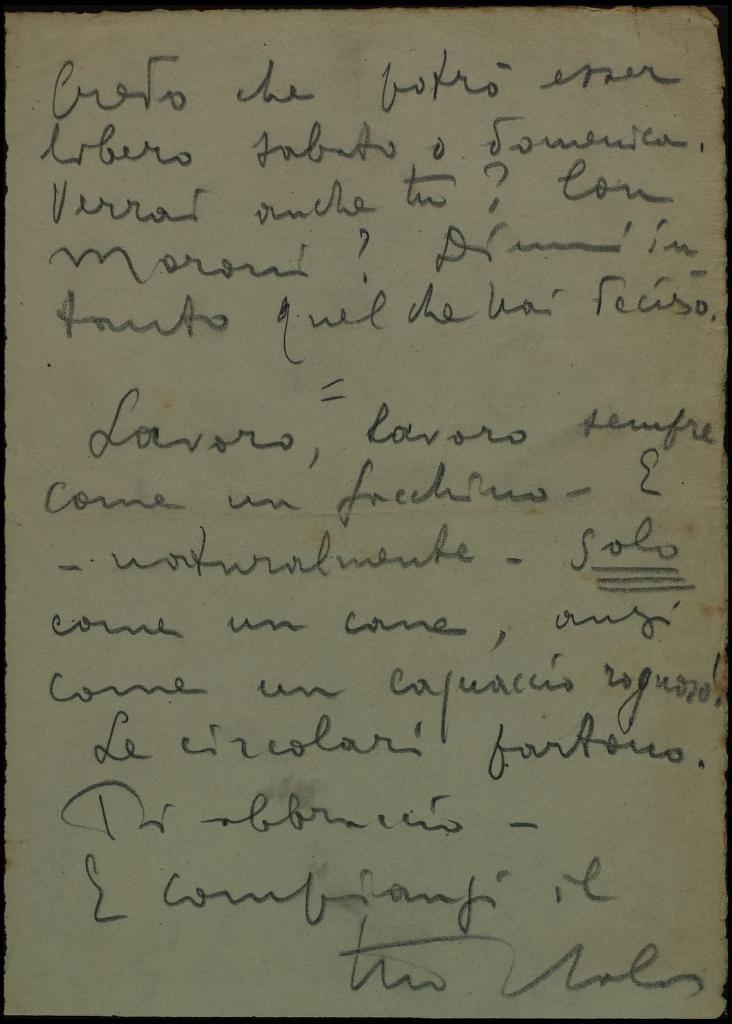 Credo che potrò esser
libero sabato o domenica.
Verrai anche tu? Con
Moroni? Dimmi in-
tanto quel che hai deciso.
=
Lavoro, lavoro sempre
come un facchino – E
– naturalmente – solo
come un cane, anzi
come un cagnaccio rognoso!
Le circolari partono.
Ti abbraccio –
E compiangi il
tuo Italo